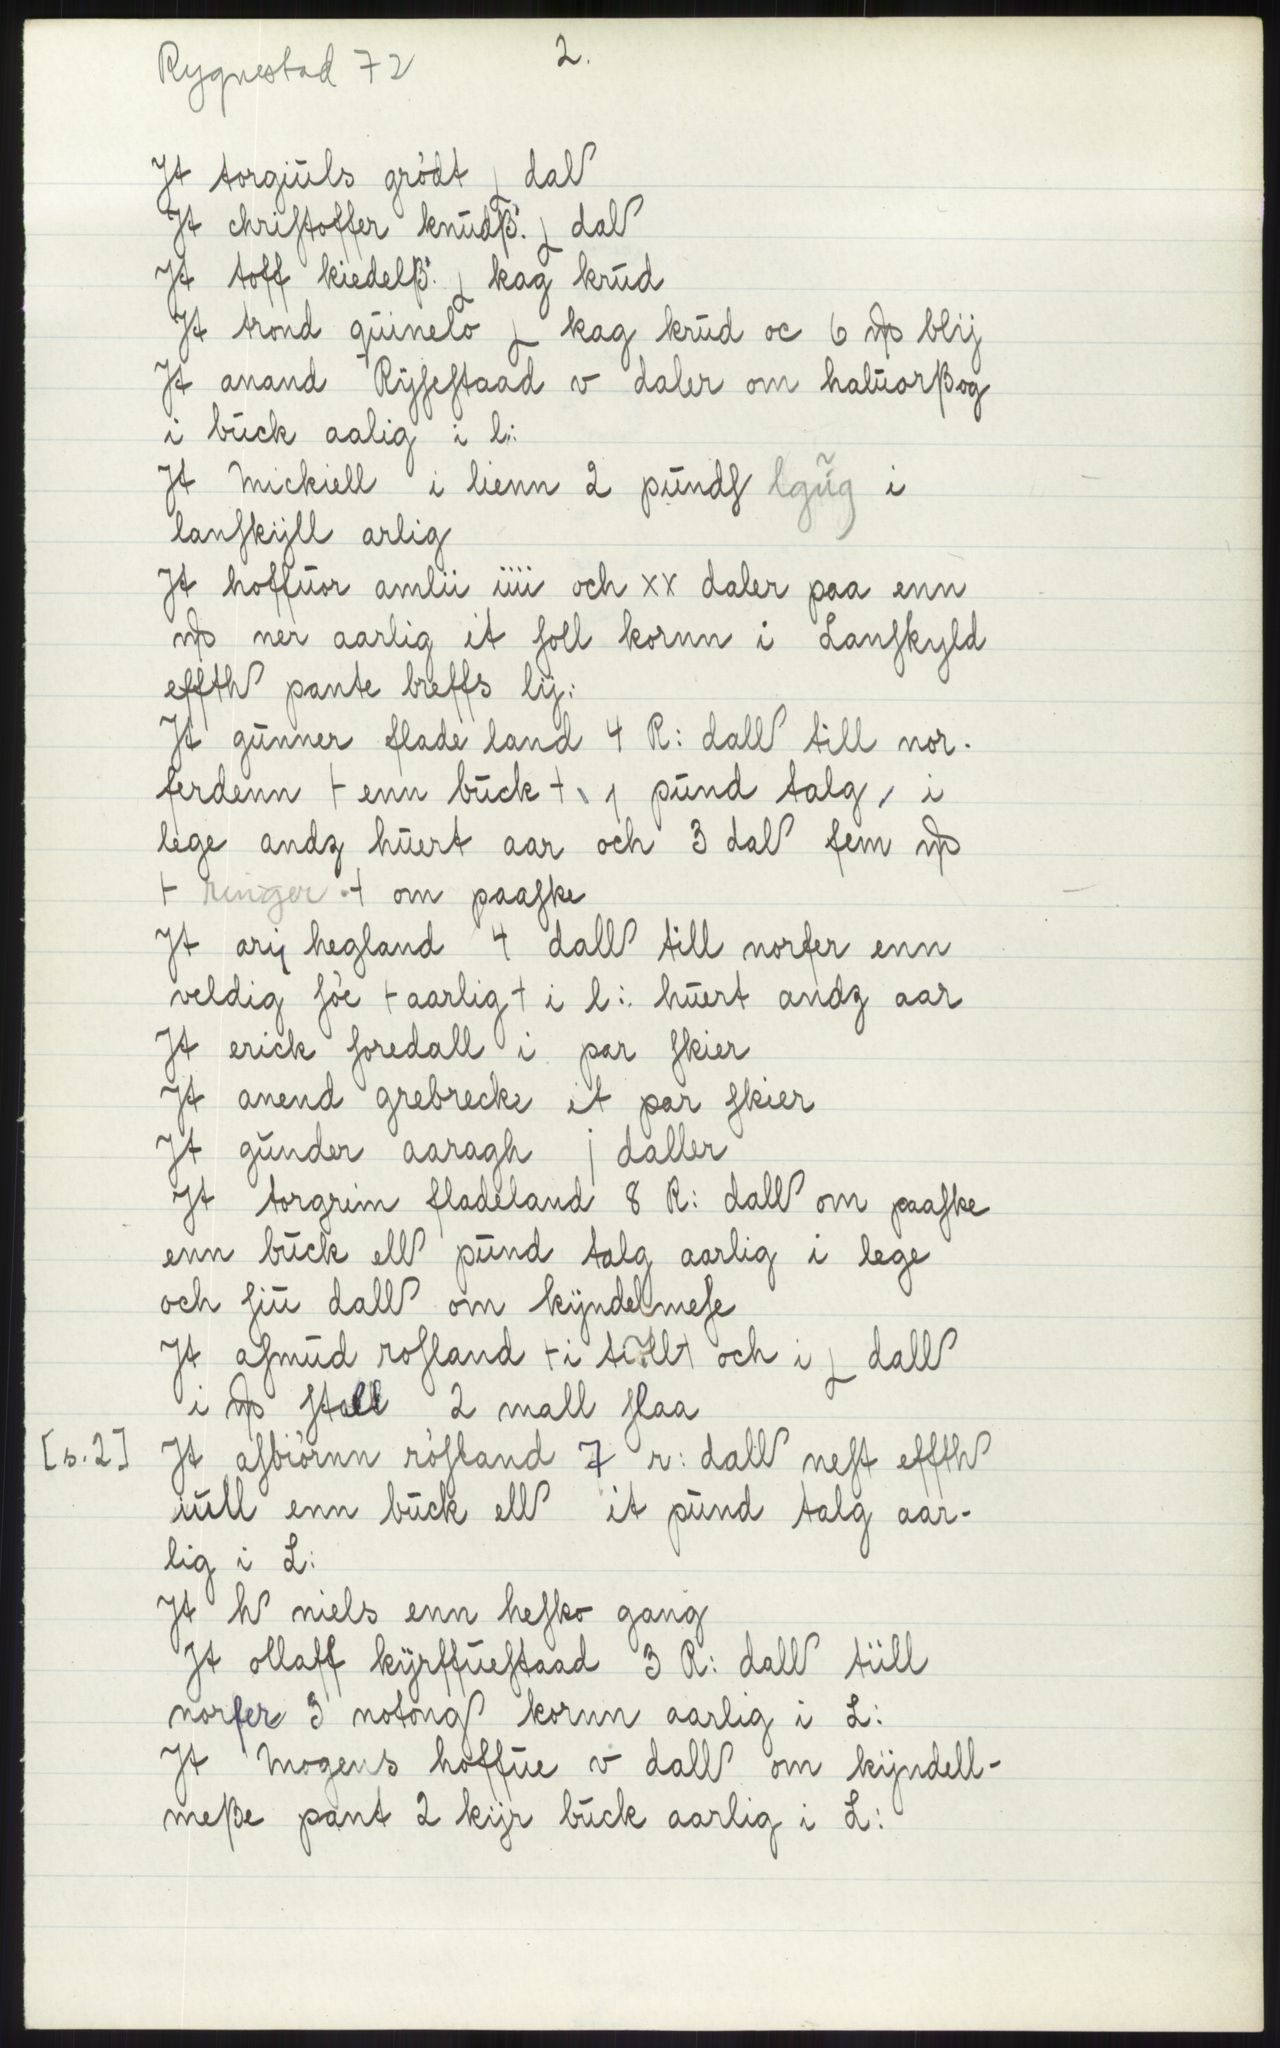 Rygnestad 72
2.
It torgiūls grödt ½ dal
It chriſtoffer knūdß. ½ dal
It toff kiedelß. ½ kag krūd
It trond qūinelo ½ kag krūd oc 6 ℔ blij
It anand Rijſeſtaad v daler om halūorßog
i būck aalig i l:
It Mickiell i lienn 2 pūndſ lgūg i
lanſkijll arlig
It hoffūor amlii iiii och xx daler paa enn
℔ ner aarlig it ſoll kornn i Lanſkyld
effth pante breffs lij:
It gūnner flade land 4 R: dall till nor-
ferdenn + enn būck + 1 pūnd talg, i
lege andz hūert aar och 3 dal fem ℔
+ ringer + om paaſke
It arij hegland 4 dall till norfer enn
veldig föe + aarlig + i l: hūert andz aar
It erick foredall i par ſkier
It anend grebrecke it par ſkier
It gūnder aaragh j daller
It torgrim fladeland 8 R: dall om paaſke
enn būck ell pūnd talg aarlig i lege
och ſiū dall om kijndelmeſe
It aſmūd roſland + i till + och i ½ dall
i ℔ ſtall 2 mall ſlaa
[s. 2] It aſbiörnn röſland 7 r: dall neſt effth
iūll enn būck ell it pūnd talg aar-
lig i L:
It h niels enn heſko gang
It ollaff kijrffūeſtaad 3 R: dall tiill
norfer 3 notong kornn aarlig i L:
It Mogens hoffūe v dall om kijndell-
meße pant 2 kijr būck aarlig i L: